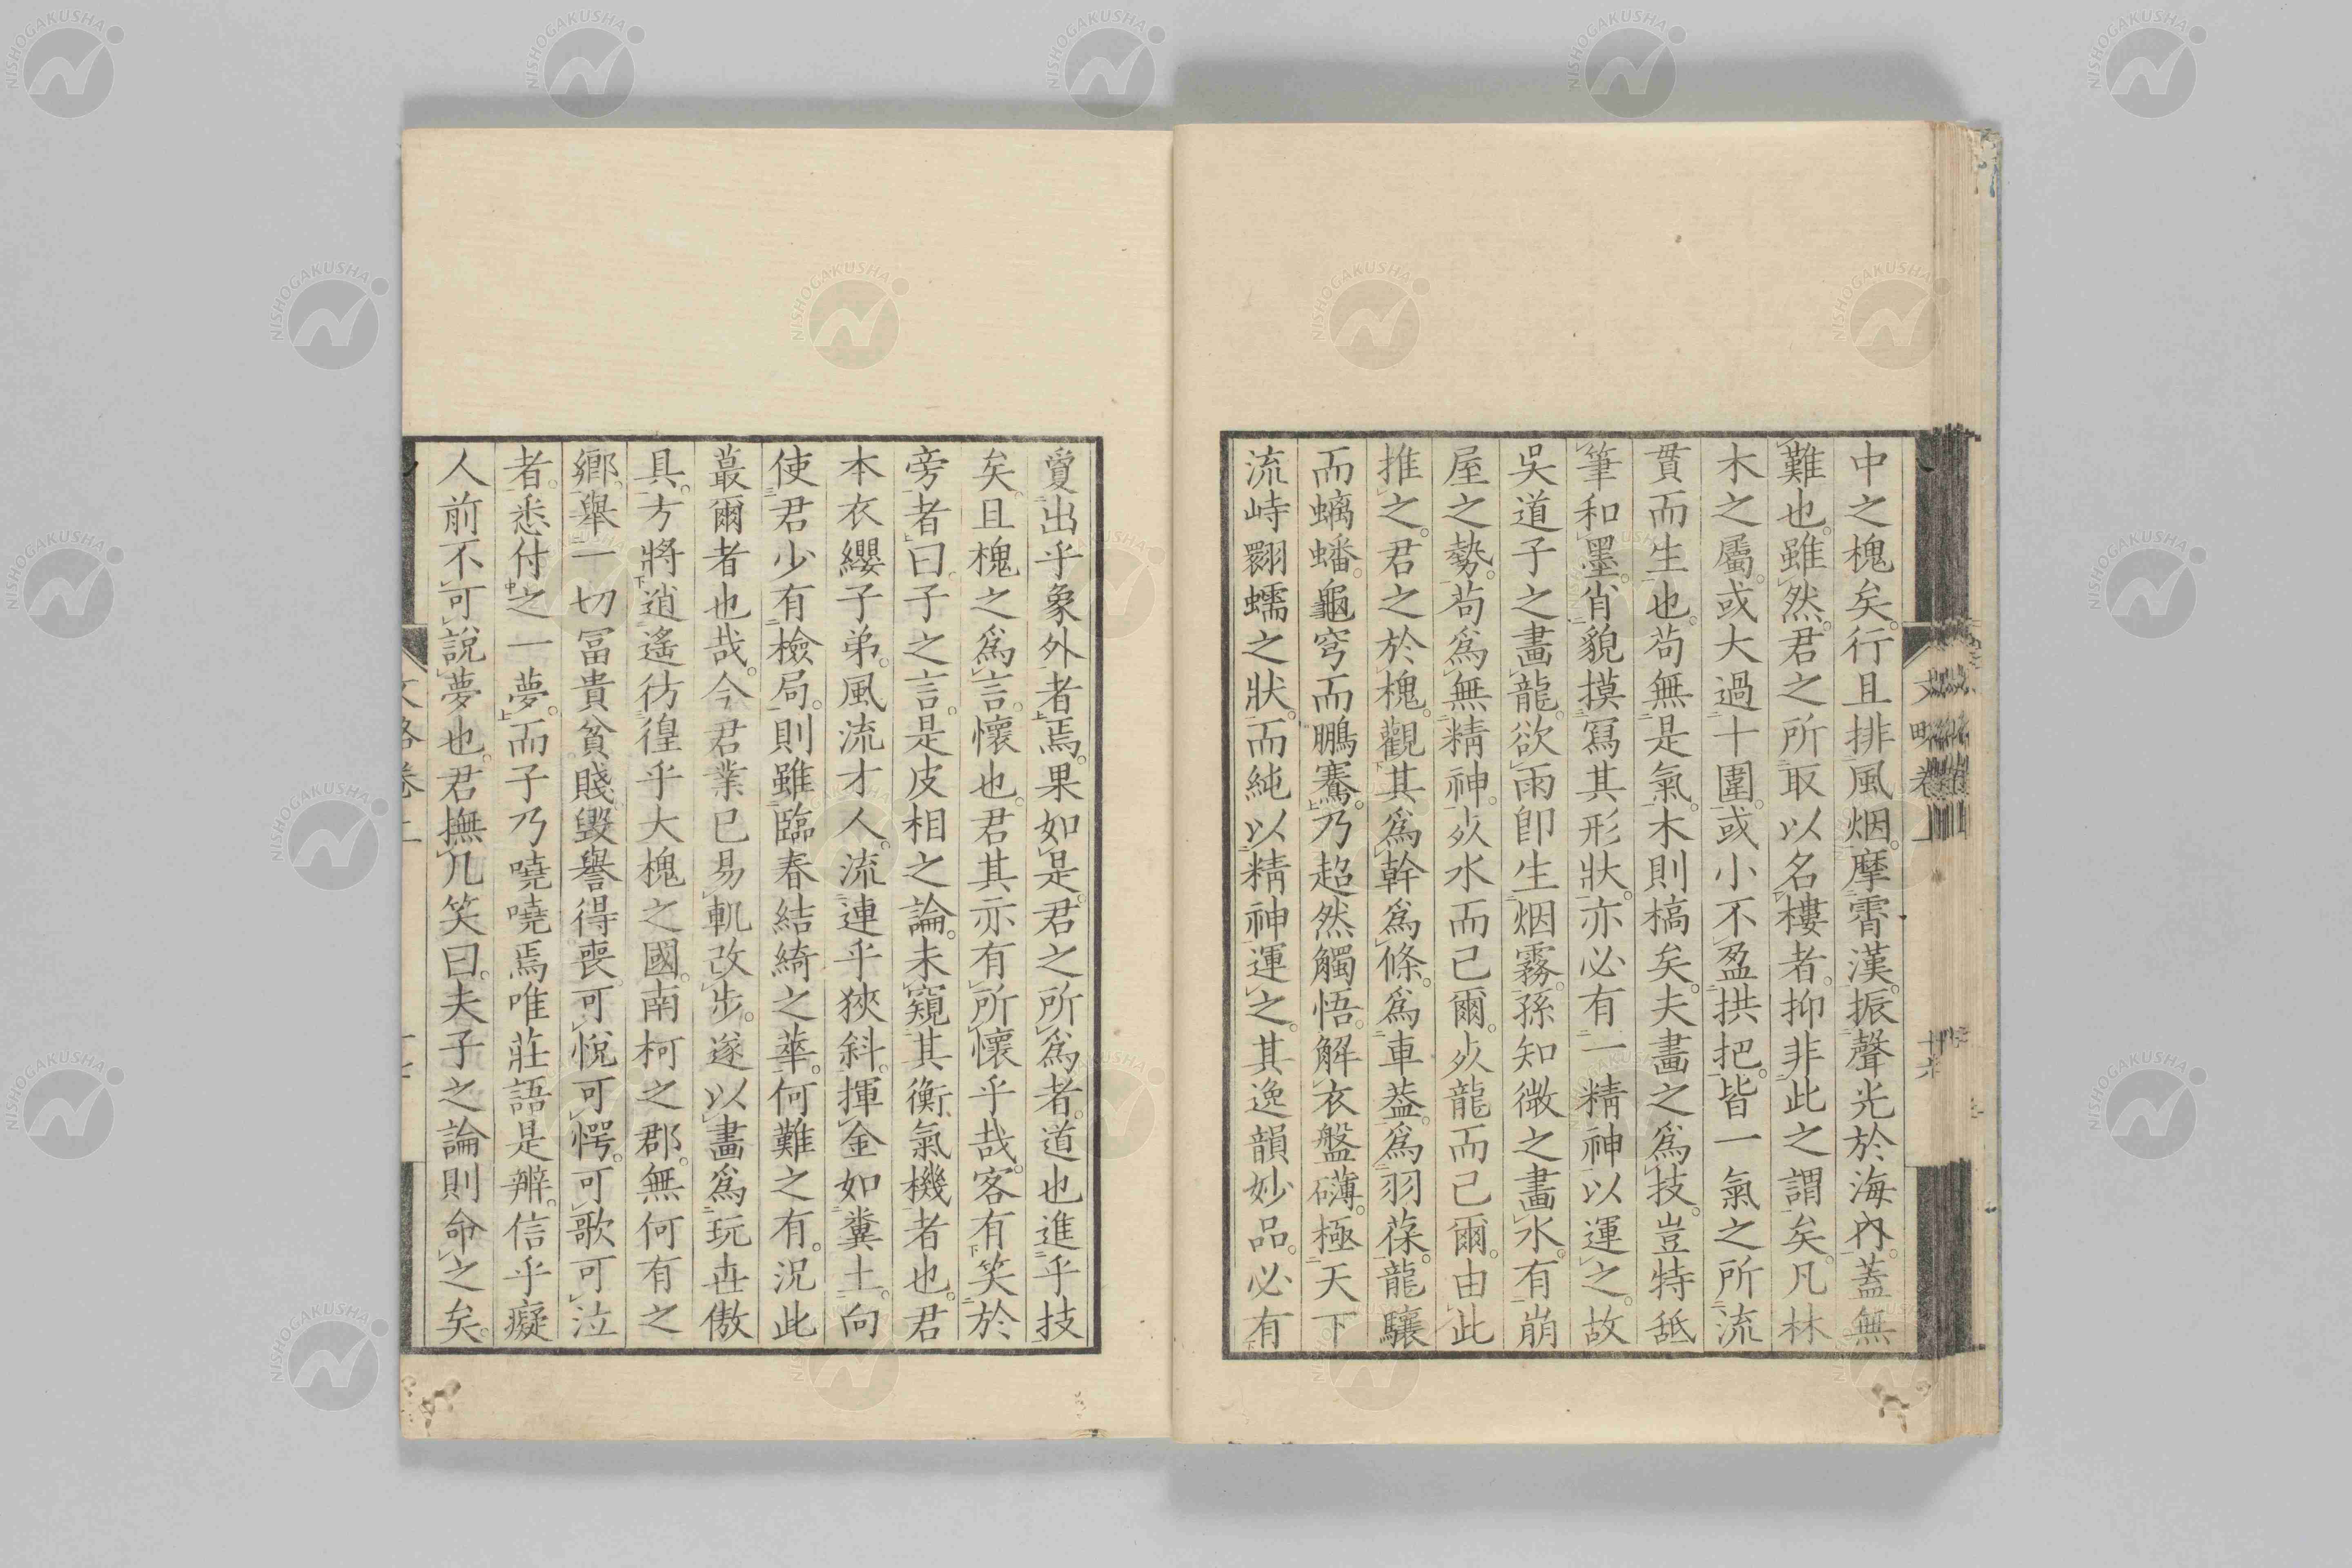 中之槐矣。行且排風烟。摩霄漢。振聲光於海內。蓋無
難也。雖然。君之所取以名樓者。抑非此之謂矣。凡林
木之屬。或大過十圍。或小不盈拱把。皆一氣之所流
貫而生也。茍無是氣。木則槁矣。夫畫之爲技。豈特舐
筆和墨。肖貌摸寫其形狀。亦必有一精神以運之。故
吳道子之畫龍。欲雨卽生烟霧。孫知微之畫水。有崩
屋之勢。茍爲無精神。㸃水而已爾。㸃龍而已爾。由此
推之。君之於槐。觀其爲幹爲條。爲車蓋。爲羽葆。龍驤
而螭蟠。龜穹而鵬騫。乃超然觸悟。解衣盤礴。極天下
流峙翾蠕之狀。而純以精神運之。其逸韻妙品。必有
夐出乎象外者焉。果如是。君之所爲者。道也進乎技
矣。且槐之爲言。懷也。君其亦有所懷乎哉。客有笑於
旁者曰子之言。是皮相之論。未窺其衡氣機者也。君
本衣纓子弟。風流才人。流連乎狹斜。揮金如糞土。向
使君少有檢局。則雖臨春結綺之華。何難之有。況此
蕞爾者也哉。今君業已易軌改步。遂以畫爲玩世傲
具。方將逍遙彷徨乎大槐之國。南柯之郡。無何有之
鄉。舉一切冨貴貧賤毀譽得喪。可悅可愕。可歌可泣
者。悉付之一夢。而子乃嘵嘵焉唯莊語是辨。信乎癡
人前不可說夢也。君撫几笑曰。夫子之論則命之矣。
文略卷上
NISHOGAKUSHA